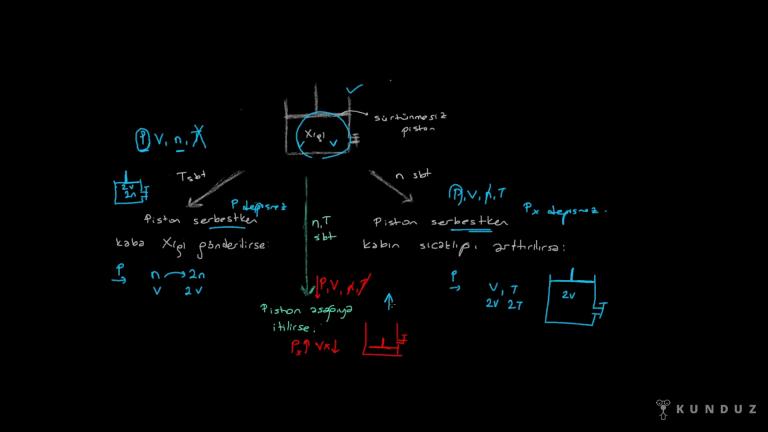 sürtünmesiz
piston
X(g)
V
P, V, n, T
2V
2n
T sbt
n sbt
n, T
sbt
P değişmez
Piston serbestken
kaba X(g) gönderilirse:
P
n → 2n
V 2V
P, V, n, T
Px değişmez.
Piston serbestken
kabın sıcaklığı arttırılırsa:
P
V, T
2V 2T
2V
P, V, n, T
Piston aşağıya
itilirse.
Px↑ Vx↓
KUNDUZ